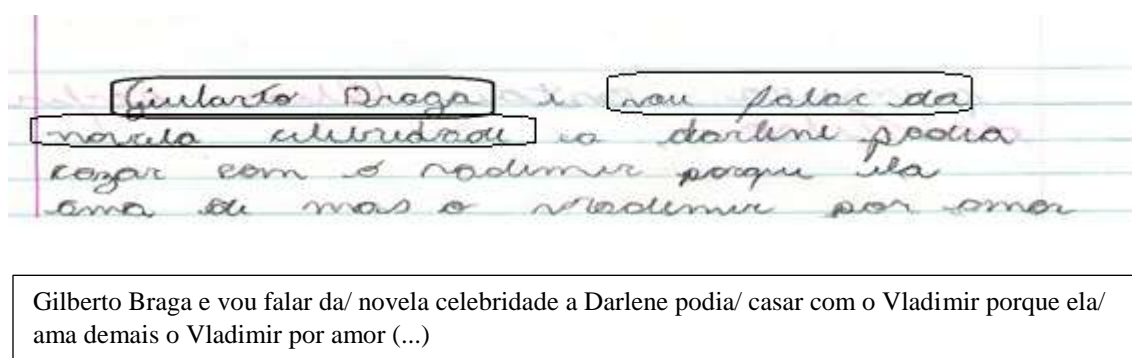 Giularto Draga e vou falar da
novela celebridade ea darlene podia
cazar com o vadimir porque ela
ama de mas o vladimir por amor
Gilberto Braga e vou falar da/ novela celebridade a Darlene podia/ casar com o Vladimir porque ela/
ama demais o Vladimir por amor (...)